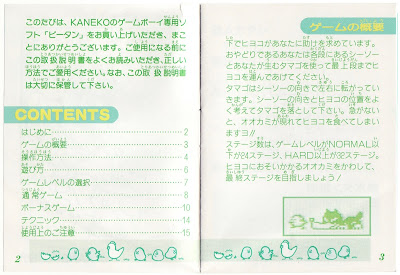 このたびは、KANEKOのゲームボーイ専用ソ
フト「ピータン」をお買い上げいただき、まこ
とにありがとうございます。ご使用になる前に
この取扱説明書をよくお読みいただき、正しい
方法でご愛用ください。なお、この取扱説明書
は大切に保管して下さい。
CONTENTS
はじめに 2
ゲームの概要 3
操作方法 4
遊び方 6
ゲームレベルの選択 7
通常ゲーム 8
ボーナスゲーム 10
テクニック 14
使用上のご注意 15
2
ゲームの概要
下でヒヨコがあなたに助けを求めています。
おやどりであるあなたは各段にあるシーソー
とあなたが生むタマゴを使って最上段までヒ
ヨコを運んであげてください。
タマゴはシーソーの向きで左右に転がってい
きます。シーソーの向きとヒヨコの位置をよ
く考えてタマゴを落として下さい。急がない
と、オオカミが現れてヒヨコを食べてしまい
ますヨ!!
ステージ数は、ゲームレベルがNORMAL以
下が24ステージ、HARD以上が32ステージ。
ヒヨコにおそいかかるオオカミをかわして、
最終ステージを目指しましょう!
3